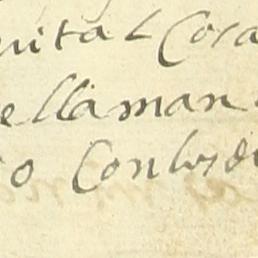 uital Cora
ellaman
o Conlos di